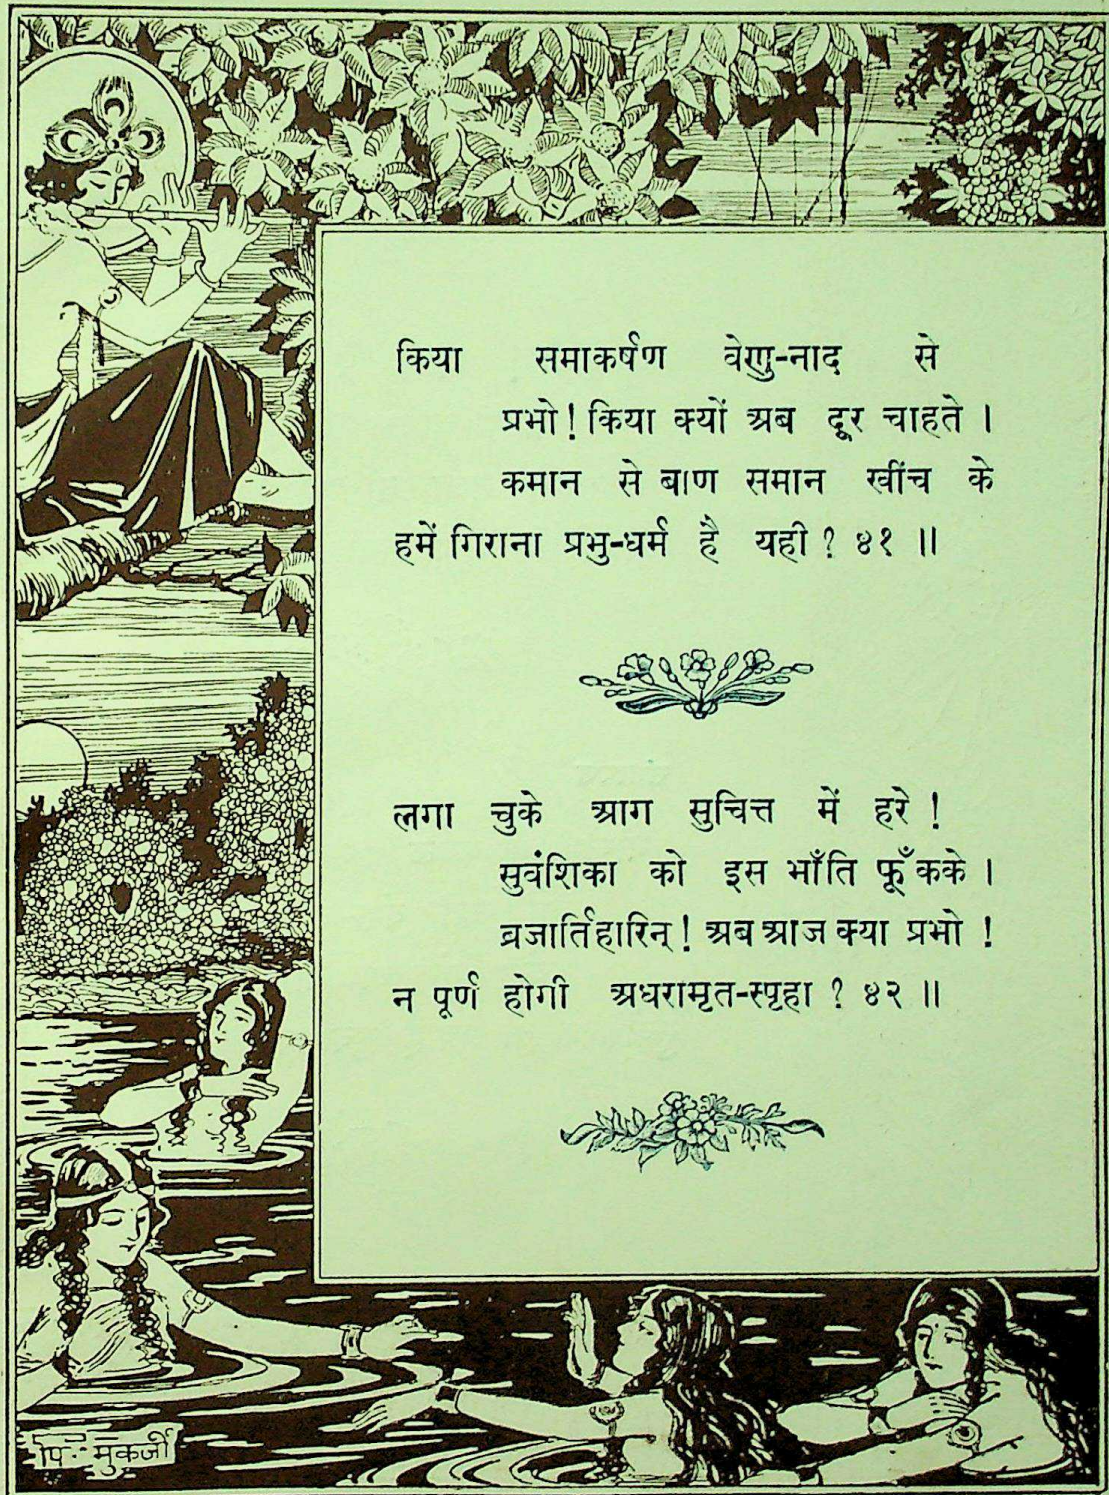 किया समाकर्षण वेणु-नाद से
प्रभो! किया क्यों अब दूर चाहते ।
कमान से बाण समान खींच के
हमें गिराना प्रभु-धर्म है यही ? ४१ ॥
लगा चुके आग सुचित्त में हरे !
सुवंशिका को इस भाँति फूँकके ।
व्रजार्तिहारिन् ! अब आज क्या प्रभो !
न पूर्ण होगी अधरामृत-स्पृहा ? ४२ ॥
पि· मुकर्जी